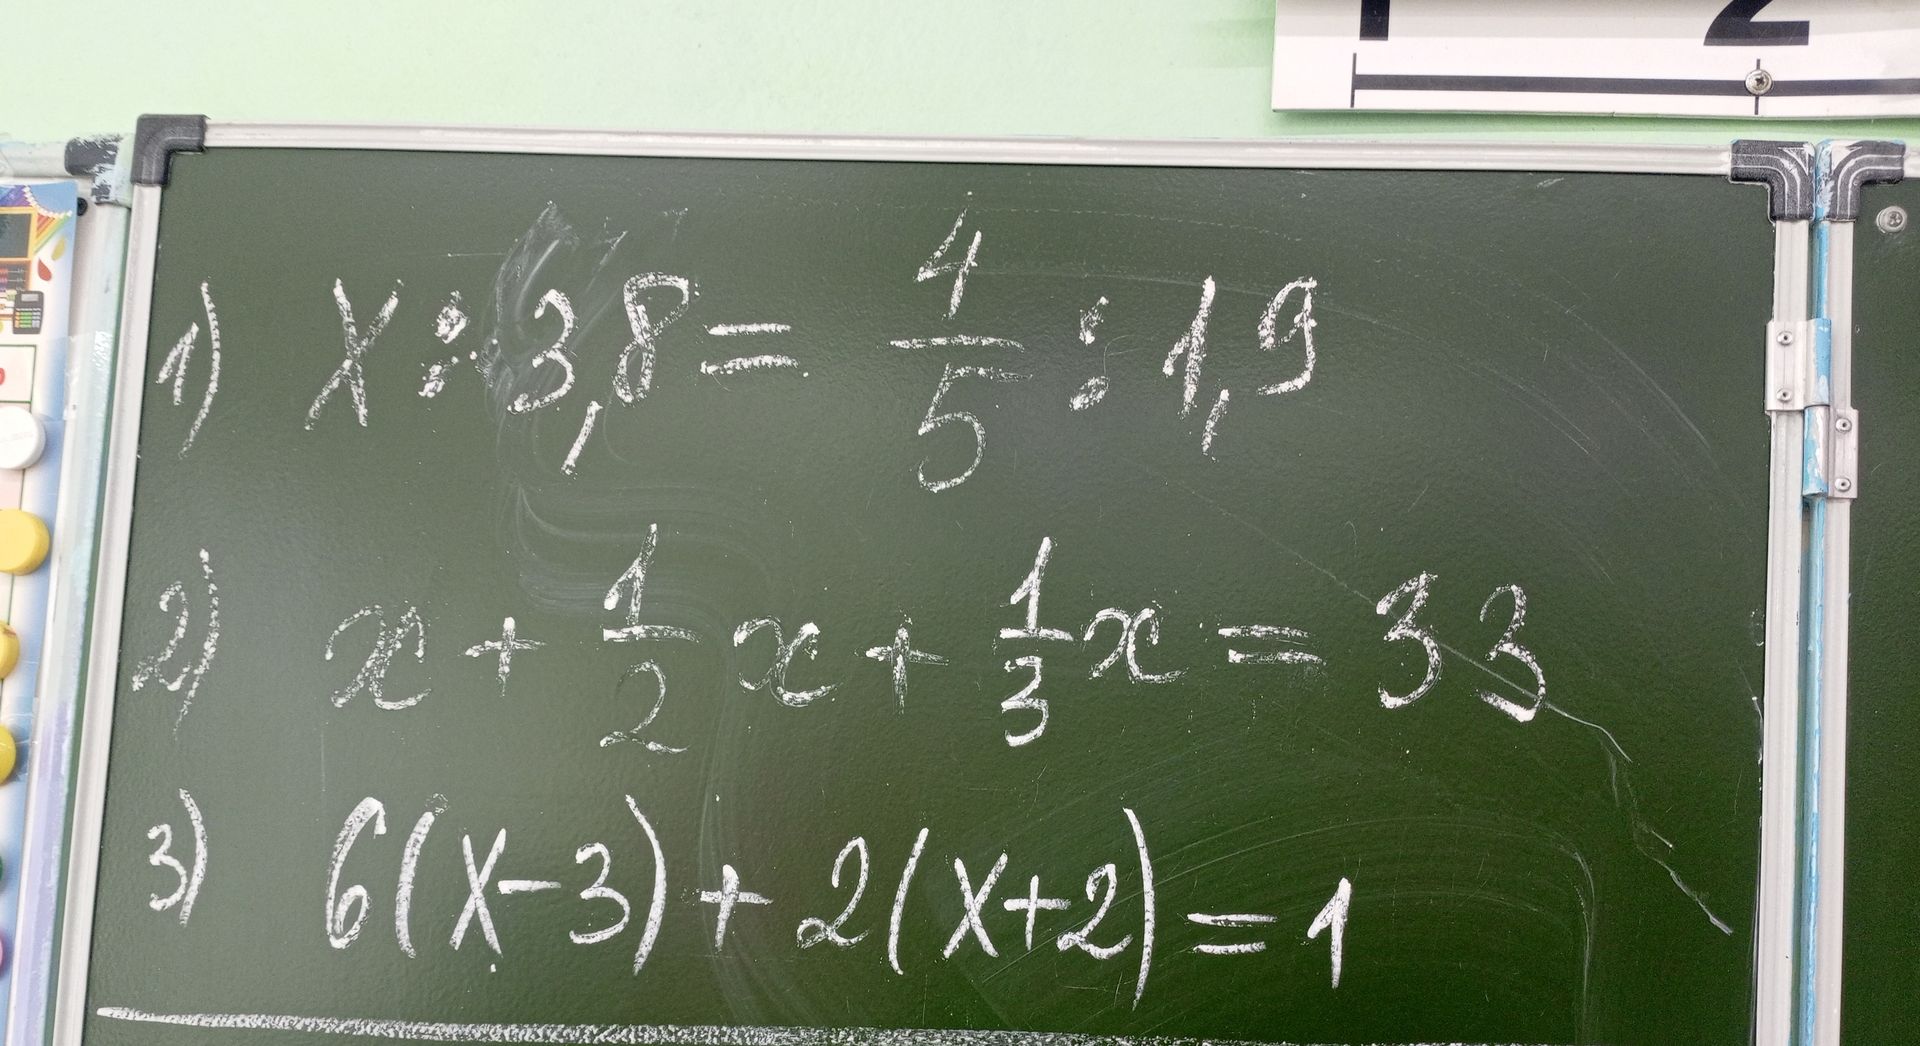 1) x : 3,8 = 4/5 : 1,9
2) x + 1/2 x + 1/3 x = 33
3) 6(x-3) + 2(x+2) = 1